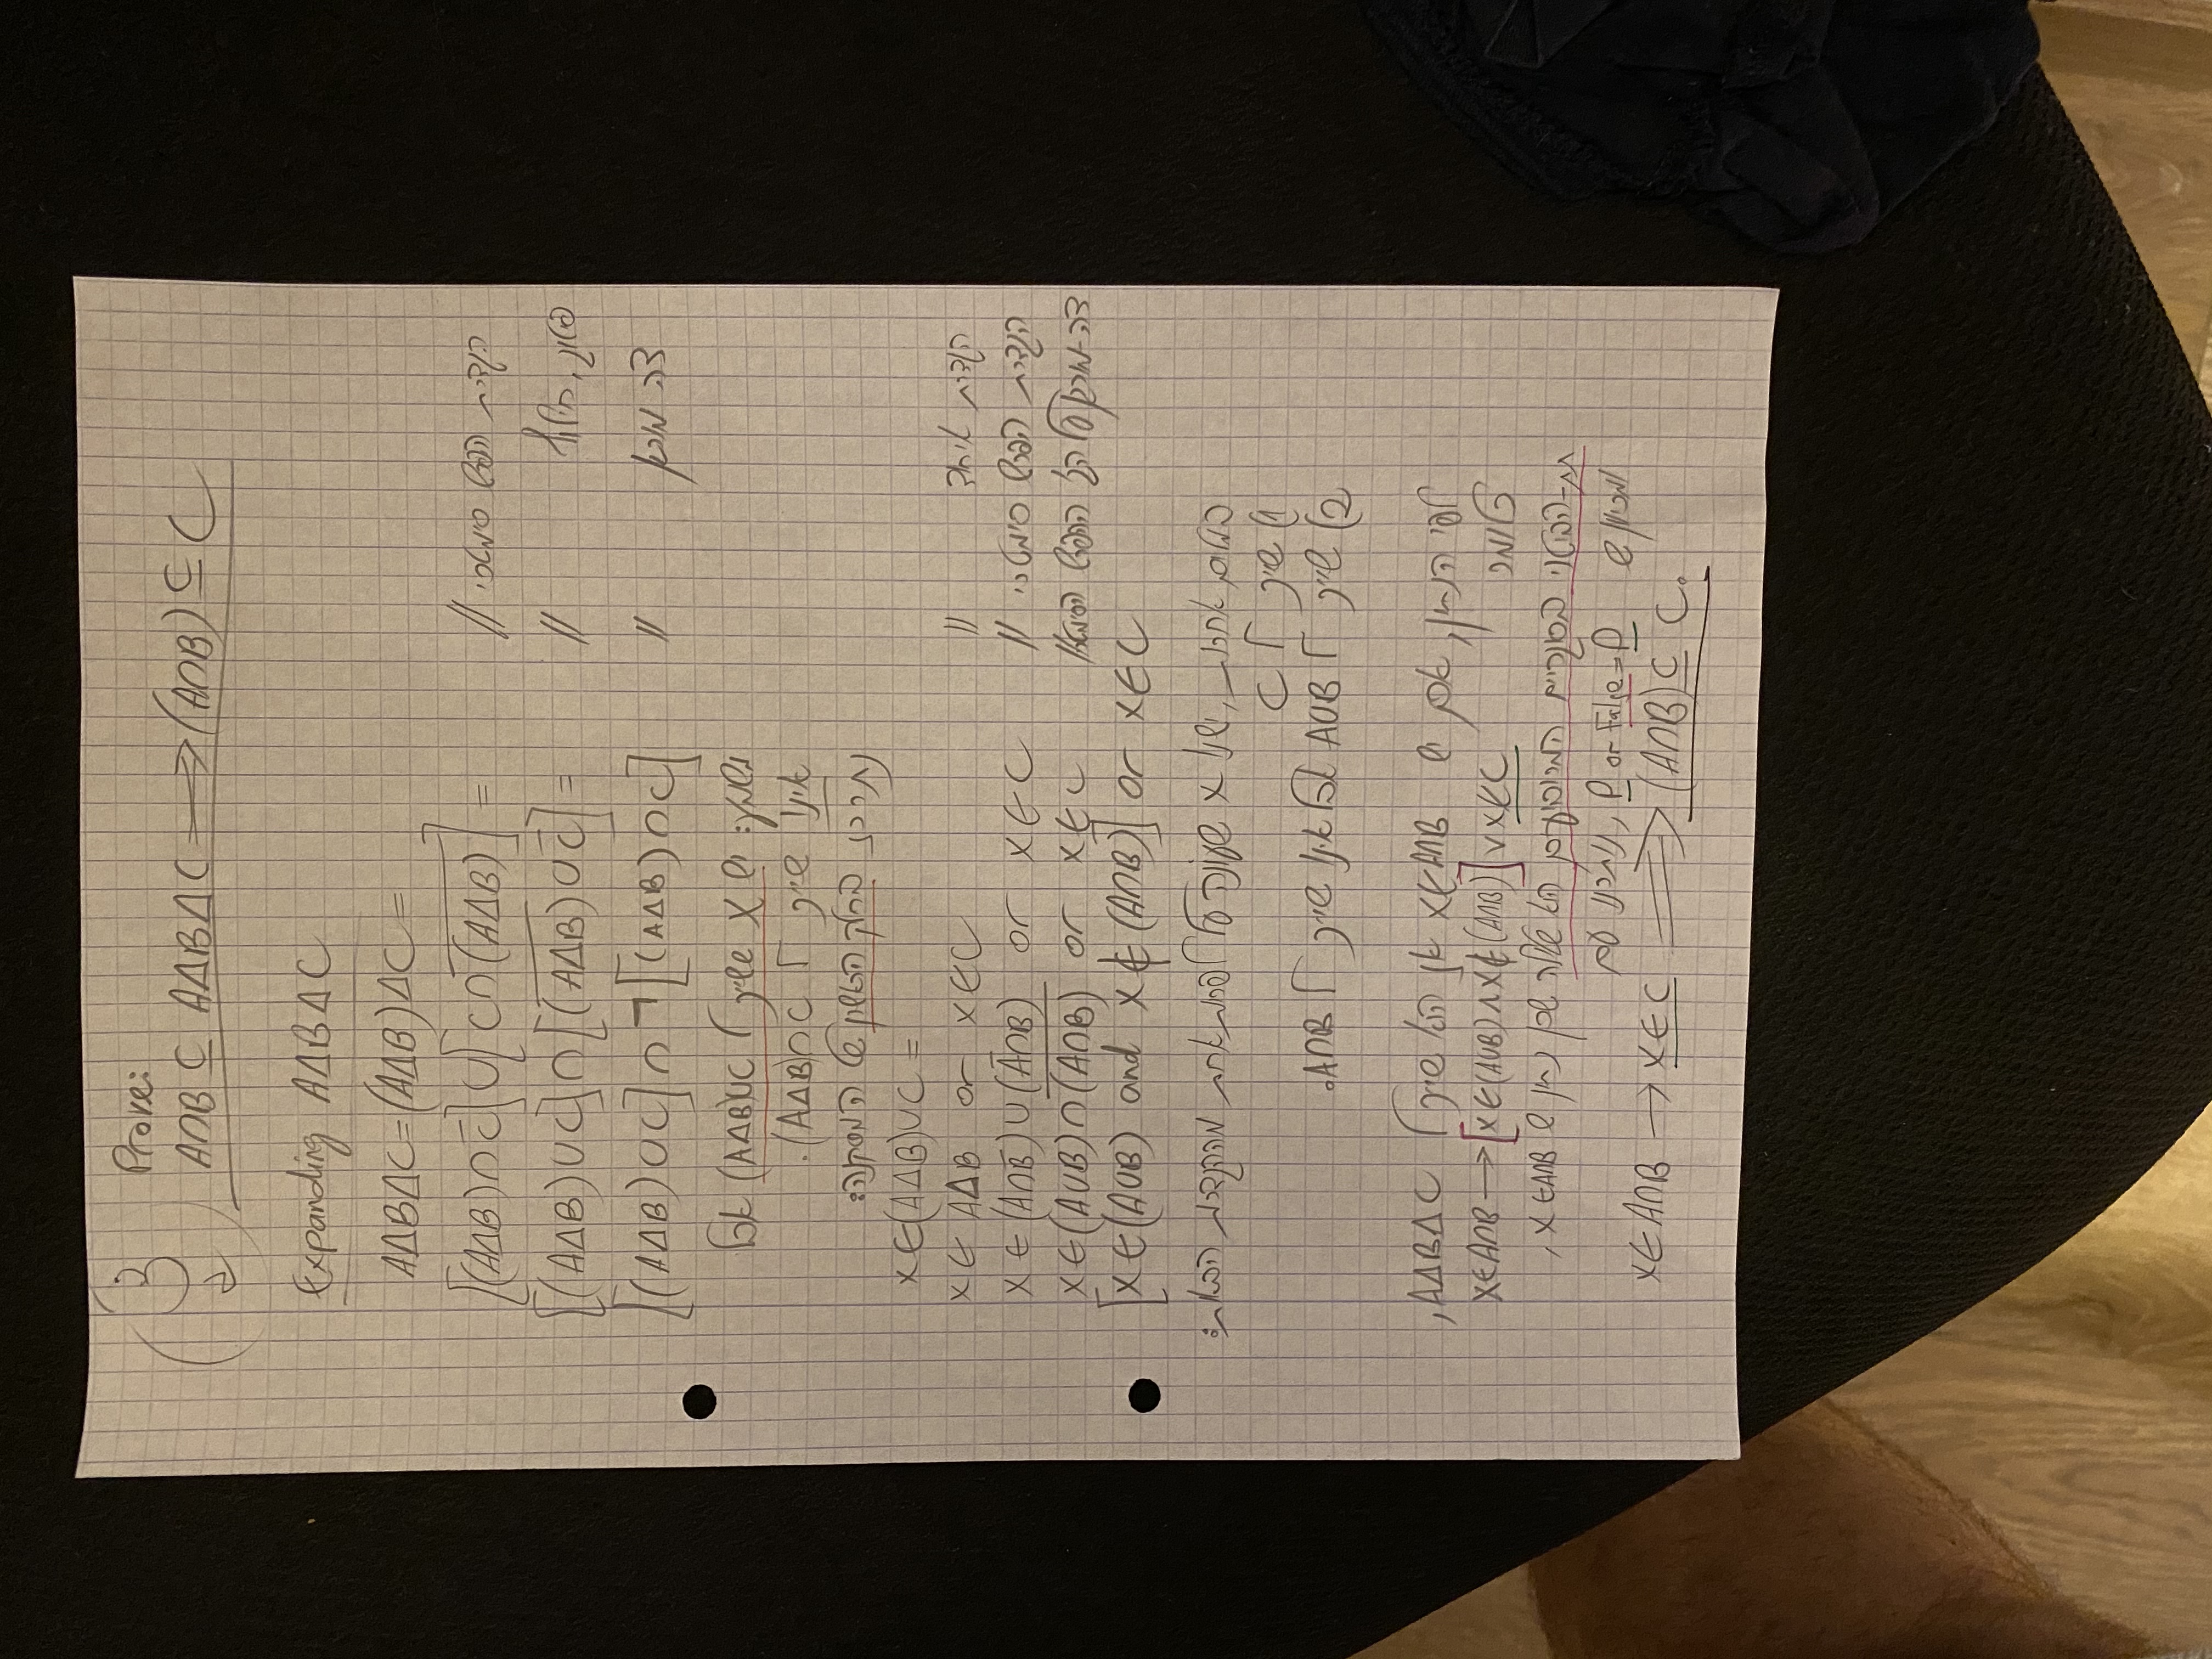 3
ב
Prove:
A∩B ⊆ AΔBΔC ⟹ (A∩B) ⊆ C
Expanding AΔBΔC
AΔBΔC = (AΔB)ΔC =
[(AΔB)∩C̅]∪[C∩\overline{(AΔB)}] = // הגדרת הפרש סימטרי
[(AΔB)∪C]∩[\overline{(AΔB)}∪C̅] = // פילוג, חילוף
[(AΔB)∪C]∩¬[(AΔB)∩C] // דה מורגן
נשמע: יש x ששייך ל (AΔB)∪C אבל
אינו שייך ל (AΔB)∩C.
נתרכז בחלק הראשון של המסקנה:
x∈(AΔB)∪C =
x∈AΔB or x∈C // הגדרת איחוד
x∈(A∩B̅)∪(A̅∩B) or x∈C // הגדרת הפרש סימטרי
x∈(A∪B)∩\overline{(A∩B)} or x∈C // דה-מורגן על הפרש הסימטרי
[x∈(A∪B) and x∉(A∩B)] or x∈C
במילים אחרות, ישנו x שעונה על לפחות אחת מההגדרות הבאות:
1) שייך ל C
2) שייך ל A∪B אבל אינו שייך ל A∩B.
לפי הנתון, אם יש x∈A∩B אז הוא שייך ל AΔBΔC,
כלומר x∈A∩B → [x∈(A∪B)∧x∉(A∩B)]∨x∈C
תת-הביטוי בסוגריים המרובעים הוא שלילה שכן נתון ש x∈A∩B,
ומכיוון ש P or False = P, נותרנו עם
x∈A∩B → x∈C ⟹ (A∩B)⊆C.